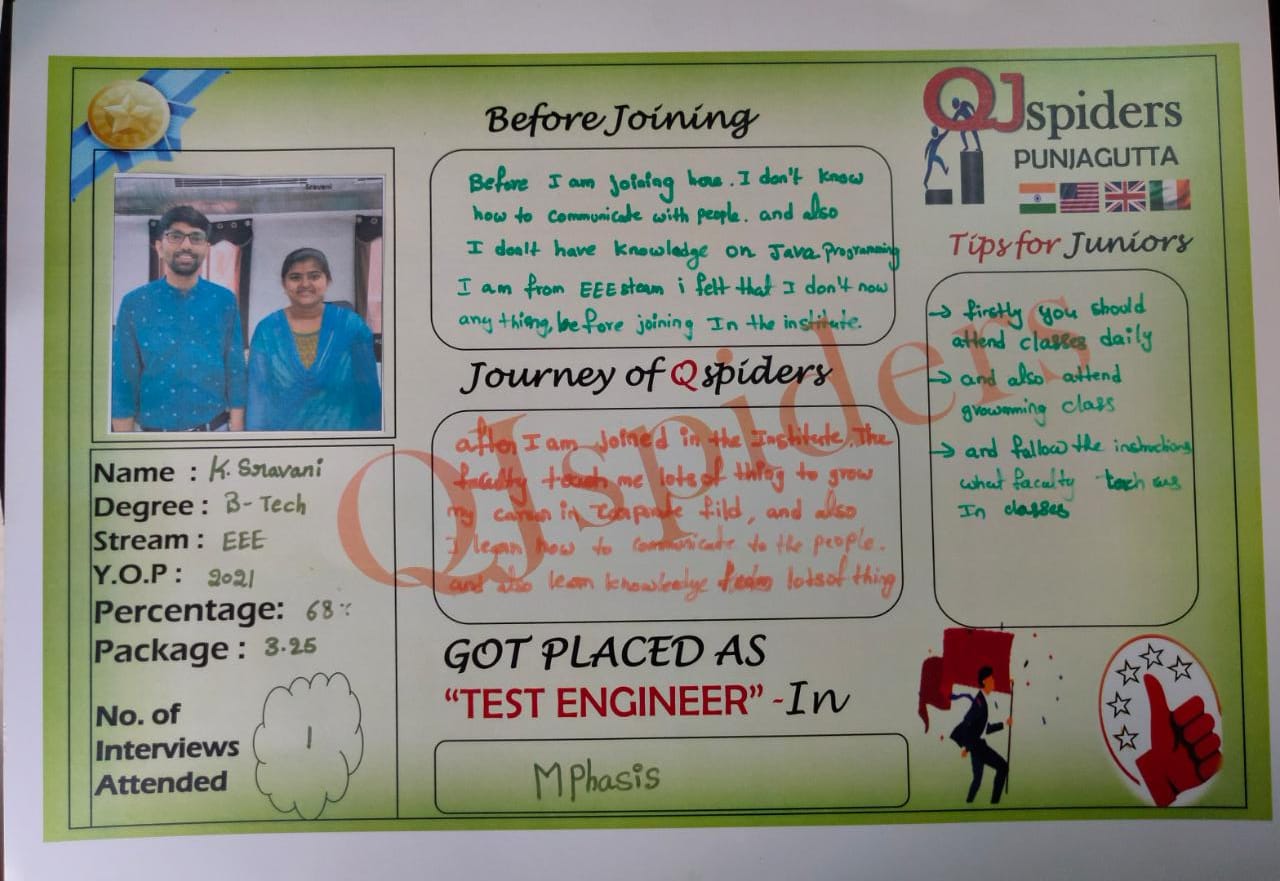 Sravani
Name : K. Sravani
Degree : B-Tech
Stream : EEE
Y.O.P : 2021
Percentage: 68%
Package : 3.25
No. of
Interviews
Attended
1
Before Joining
Before I am Joining here. I don't know
how to communicate with people. and also
I don't have knowledge on Java programming
I am from EEE steam i felt that I don't now
any thiong, before joining In the institute.
Journey of Qspiders
after I am Joined in the Institute. The
faculty teach me lots of thing to grow
my career in fild, and also
I lean how to communicate to the people.
and also lean knowledge lots of thing
GOT PLACED AS
“TEST ENGINEER” -In
MPhasis
QJspiders
PUNJAGUTTA
Tips for Juniors
→ firstly you should
attend classes daily
→ and also attend
growmming class
→ and follow the instructions
what faculty teach
In classes
QJspiders